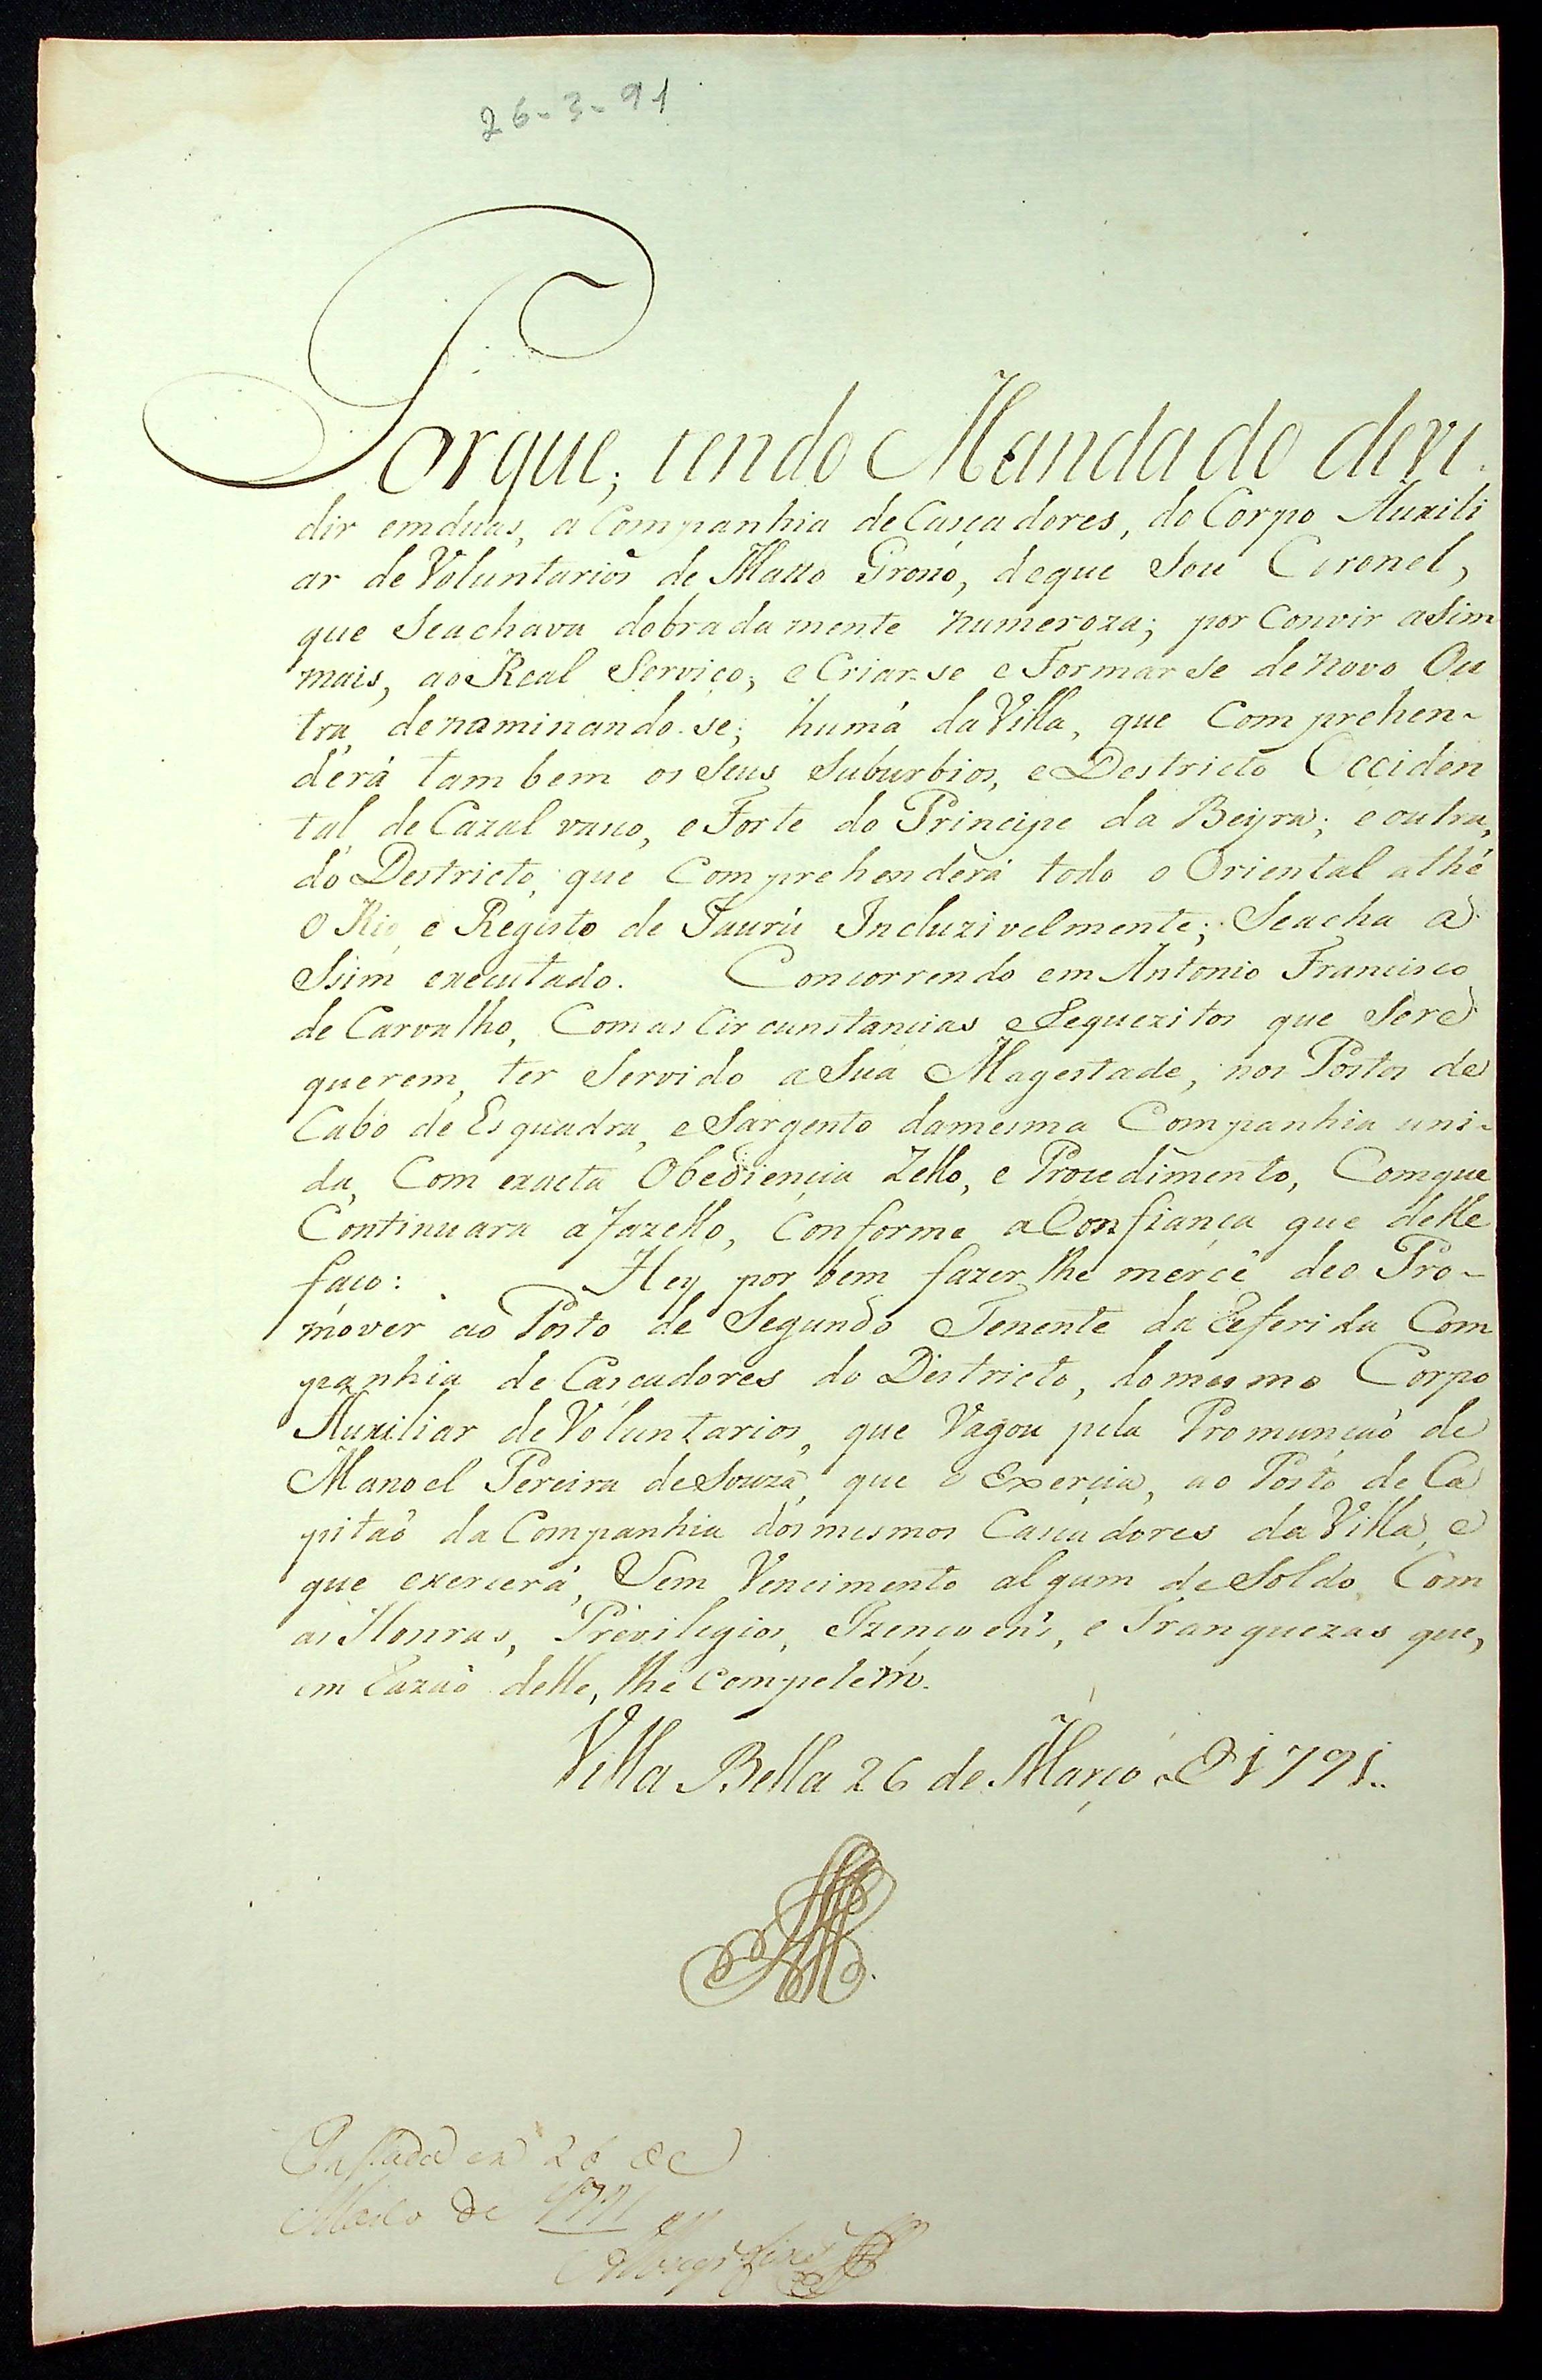 26-3-91
Porque, tendo Mandado devi-
dir emduas, a Companhia de Cassadores, do Corpo Auxili
ar de Voluntarios de Matto Grosso, deque Sou Coronel,
que Seachava dobradamente numeroza; por Convir asim
mais, ao Real Serviço; e Criar-se e Formar Se de novo Ou
tra, denaminando-se; humá da Villa, que Comprehen-
derá tambem os Seus Suburbios, e Destricto Occiden
tal de Cazal vasco, e Forte do Principe da Beyra; e outra,
do Destricto, que Comprehenderá todo o Oriental athé
O Rio, e Registo de Jaurú Incluzivelmente; Seacha a
Ssim executado. Concorrendo em Antonio Francisco
de Carvalho, Comas Circunstancias eRequezitos que Sere
querem, ter Servido a Sua Magestade, nos Postos de
Cabo de Esquadra, e Sargento damesma Companhia uni-
da, Com exacta Obediençia Zello, e Procedimento, Comque
Continuara afazello, Conforme aConfiança que delle
faço: Hey por bem fazer lhe mercê deo Pro-
mover ao Posto de Segundo Tenente da Referida Com
panhia de Cascadores do Districto, domesmo Corpo
Auxiliar de Voluntarios, que Vagou pela Promunçaõ de
Manoel Pereira deSouza, que o Exerçia, ao Posto de Ca
pitaõ da Companhia dosmesmos Cascadores da Villa, e
que exercerá, Sem Vencimento algum de Soldo, Com
as Honras, Previlegios, Izençoens, e Franquezas que,
em Razaõ delle, lhe Competem.
Villa Bella 26 de Março de 1791..
Passada em 26 de
Março de 1791